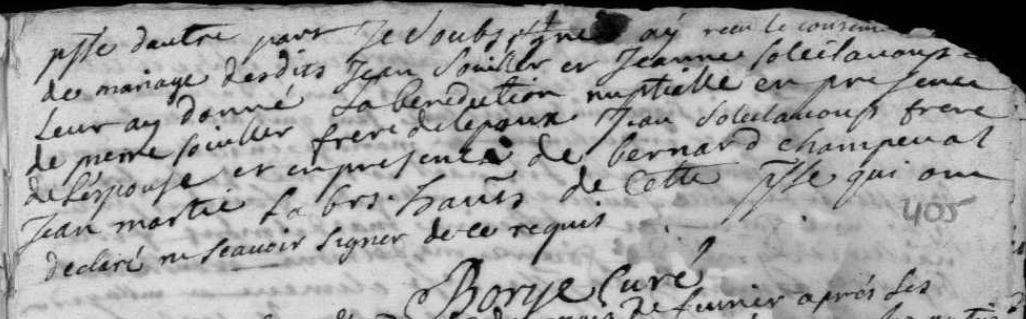 psse d'autre part Je soubsigne ay receu le consentem
de mariage desdits Jean Souiller et Jeanne Soleilauoup
Leur ay donné La benediction nuptialle en presence
de pierre souiller frere de lepoux Jean Soleilauoup frere
de l'espouse et en presence de bernard champeual
Jean martie habts. de Cette psse qui ont
declaré ne scauoir signer de ce requis
405
Borye Curé
de feurier aprés les